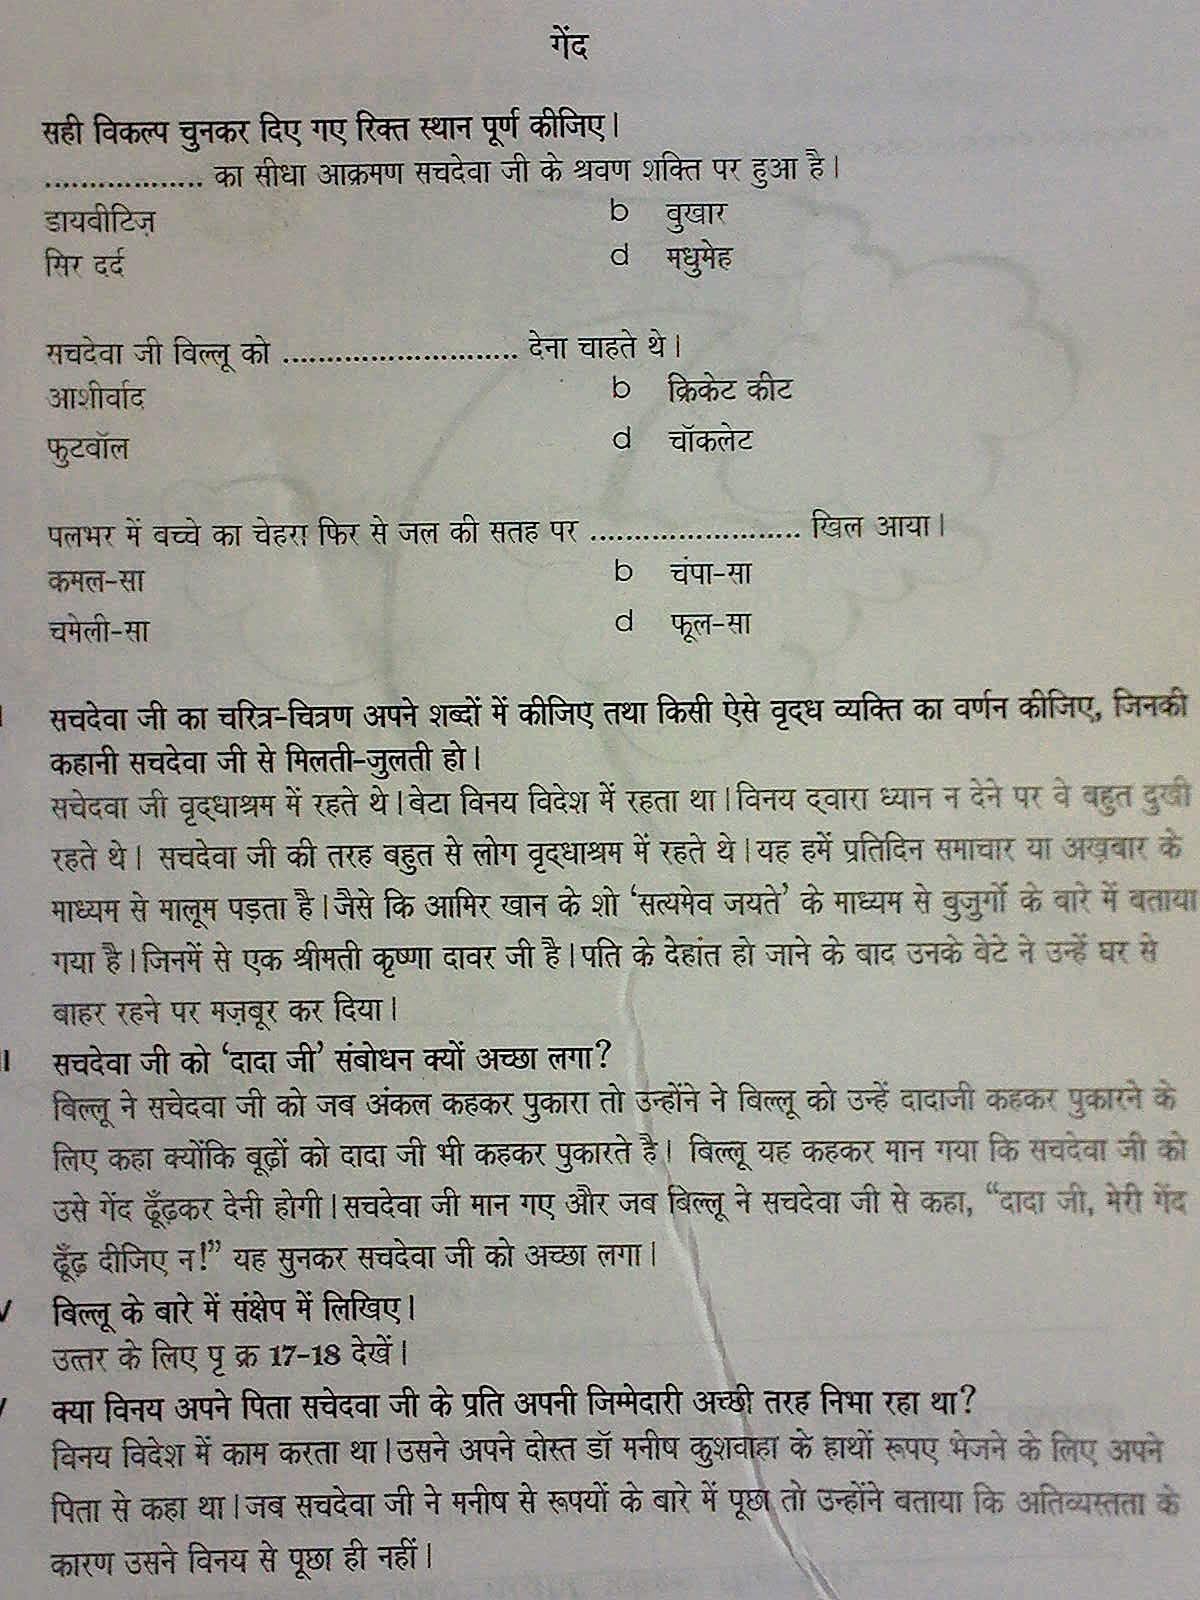 गेंद
सही विकल्प चुनकर दिए गए रिक्त स्थान पूर्ण कीजिए।
.................. का सीधा आक्रमण सचदेवा जी के श्रवण शक्ति पर हुआ है।
डायवीटिज़ b वुखार
सिर दर्द d मधुमेह
सचदेवा जी विल्लू को .......................... देना चाहते थे।
आशीर्वाद b क्रिकेट कीट
फुटवॉल d चॉकलेट
पलभर में बच्चे का चेहरा फिर से जल की सतह पर ........................ खिल आया।
कमल-सा b चंपा-सा
चमेली-सा d फूल-सा
सचदेवा जी का चरित्र-चित्रण अपने शब्दों में कीजिए तथा किसी ऐसे वृद्ध व्यक्ति का वर्णन कीजिए, जिनकी
कहानी सचदेवा जी से मिलती-जुलती हो।
सचेदवा जी वृद्धाश्रम में रहते थे।बेटा विनय विदेश में रहता था।विनय द्वारा ध्यान न देने पर वे बहुत दुखी
रहते थे। सचदेवा जी की तरह बहुत से लोग वृद्धाश्रम में रहते थे।यह हमें प्रतिदिन समाचार या अख़बार के
माध्यम से मालूम पड़ता है।जैसे कि आमिर खान के शो ‘सत्यमेव जयते’ के माध्यम से बुजुर्गों के बारे में बताया
गया है।जिनमें से एक श्रीमती कृष्णा दावर जी है।पति के देहांत हो जाने के बाद उनके वेटे ने उन्हें घर से
बाहर रहने पर मज़बूर कर दिया।
सचदेवा जी को ‘दादा जी’ संबोधन क्यों अच्छा लगा?
बिल्लू ने सचेदवा जी को जब अंकल कहकर पुकारा तो उन्होंने ने बिल्लू को उन्हें दादाजी कहकर पुकारने के
लिए कहा क्योंकि बूढ़ों को दादा जी भी कहकर पुकारते है। बिल्लू यह कहकर मान गया कि सचदेवा जी को
उसे गेंद ढूँढ़कर देनी होगी।सचदेवा जी मान गए और जब बिल्लू ने सचदेवा जी से कहा, “दादा जी, मेरी गेंद
ढूँढ़ दीजिए न!” यह सुनकर सचदेवा जी को अच्छा लगा।
बिल्लू के बारे में संक्षेप में लिखिए।
उत्तर के लिए पृ क्र 17-18 देखें।
क्या विनय अपने पिता सचेदवा जी के प्रति अपनी जिम्मेदारी अच्छी तरह निभा रहा था?
विनय विदेश में काम करता था।उसने अपने दोस्त डॉ मनीष कुशवाहा के हाथों रूपए भेजने के लिए अपने
पिता से कहा था।जब सचदेवा जी ने मनीष से रूपयों के बारे में पूछा तो उन्होंने बताया कि अतिव्यस्तता के
कारण उसने विनय से पूछा ही नहीं।